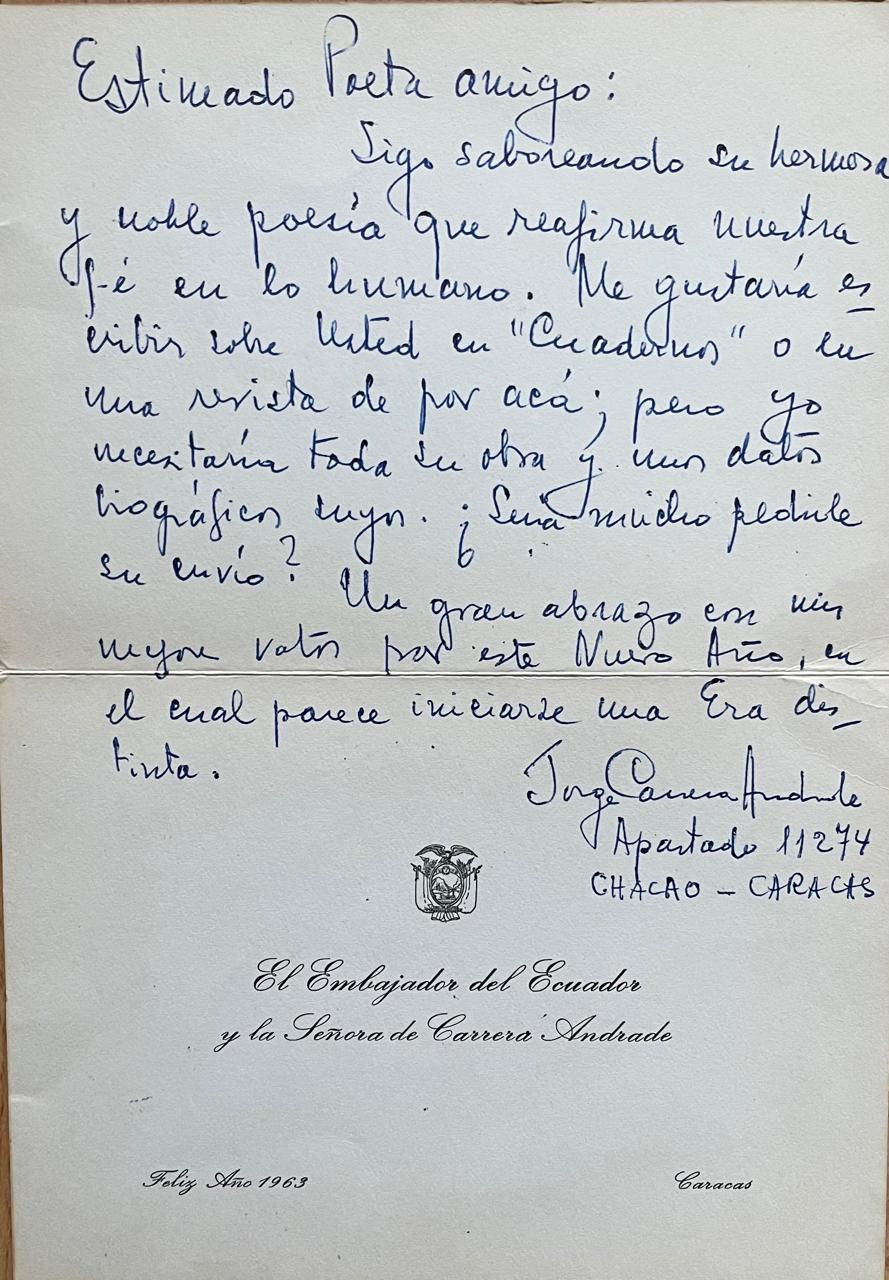 Estimado Poeta amigo:
Sigo saboreando su hermosa
y noble poesía que reafirma nuestra
fé en lo humano. Me gustaría es
cribir sobre Usted en "Cuadernos" o en
una revista de por acá; pero yo
necesitaría toda su obra y unos datos
biográficos suyos. ¿Sería mucho pedirle
su envío?
Un gran abrazo con mis
mejores votos por este Nuevo Año, en
el cual parece iniciarse una Era dis_
tinta.
Jorge Carrera Andrade
Apartado 11274
CHACAO - CARACAS
El Embajador del Ecuador
y la Señora de Carrera Andrade
Feliz Año 1963
Caracas